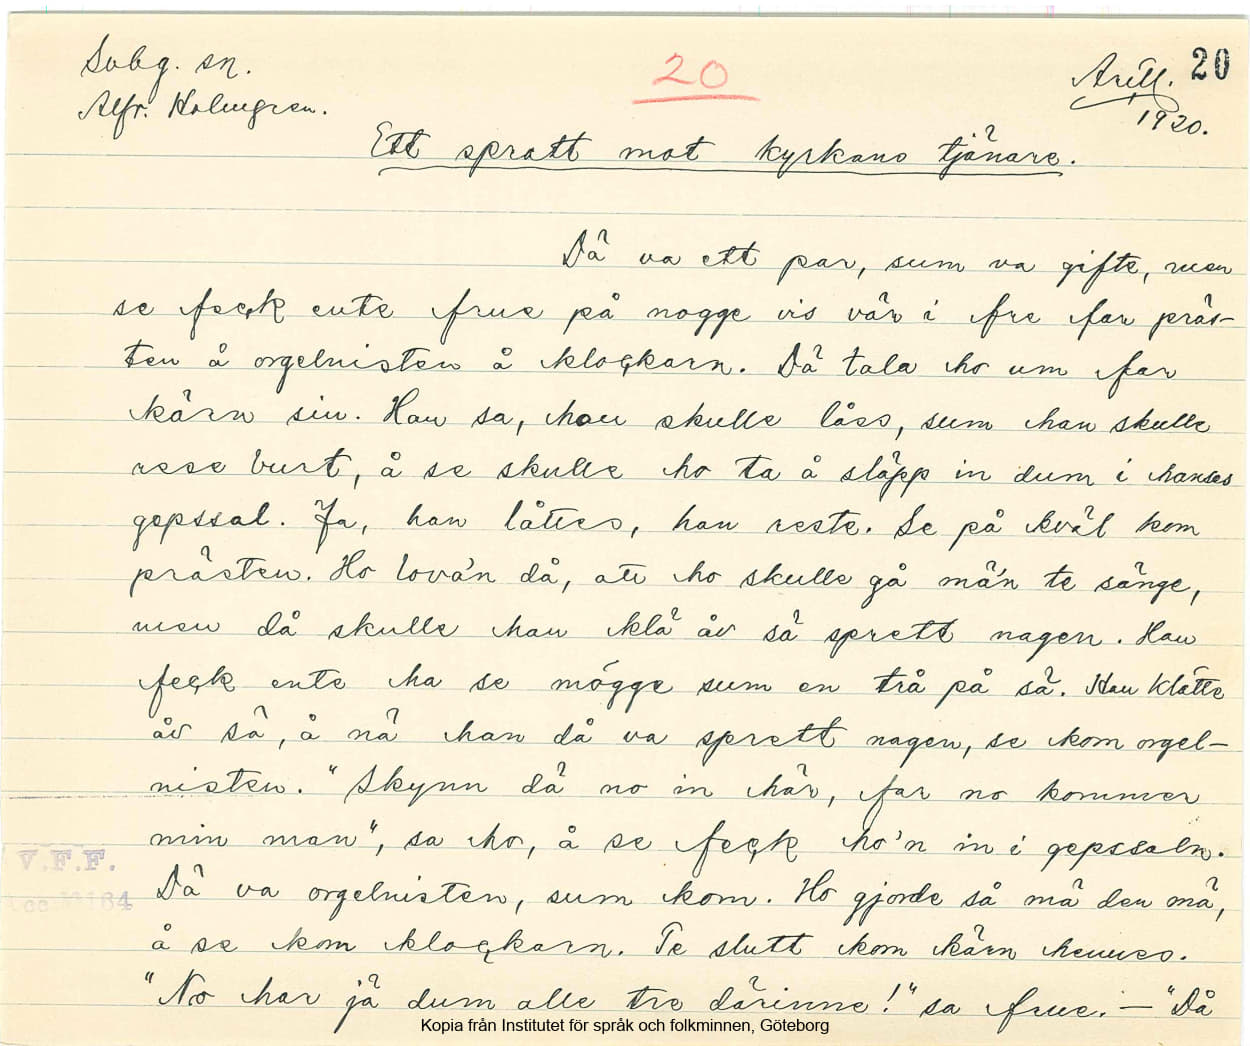 Svbg. sn.
Alfr. Holmgren.
20
Arill. 20
1920.
Ett spratt mot kyrkans tjänare.
Dä va ett par, sum va gifte, men
se feck ente frue på nogge vis vär i fre får präs-
ten å orgelnisten å klockarn. Dä tala ho um får
kärn sin. Han sa, han skulle låss, sum han skulle
rese burt, å se skulle ho ta å släpp in dum i hanses
gepssal. Ja, han låttes, han reste. Se på kväl kom
prästen. Ho lova'n då, att ho skulle gå mä'n te sänge,
men då skulle han klä åv sä sprett nagen. Han
feck ente ha se mögge sum en trå på sä. Han klätte
åv sä, å nä han då va sprett nagen, se kom orgel-
nisten. "Skynn dä no in här, får no kommer
min man", sa ho, å se feck ho'n in i gepssaln.
Dä va orgelnisten, sum kom. Ho gjorde så mä den mä,
å se kom klockarn. Te slutt kom kärn hennes.
"No har jä dum alle tre därinne!" sa frue. — "Då
V.F.F.
Kopia från Institutet för språk och folkminnen, Göteborg